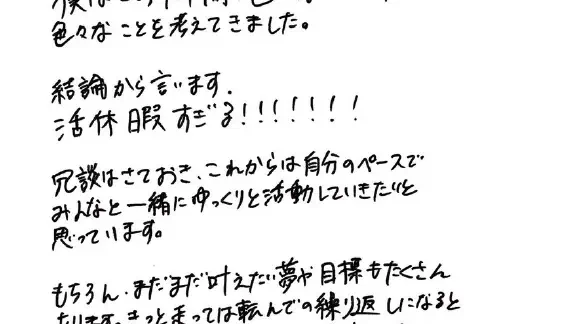 色々なことを考えてきました。
結論から言います.
活休暇すぎる!!!!!!!
冗談はさておき、これからは自分のペースで
みんなと一緒にゆっくりと活動していきたいと
思っています。
もちろん、まだまだ叶えたい夢や目標もたくさん
あります。きっと走っては転んでの繰り返しになると